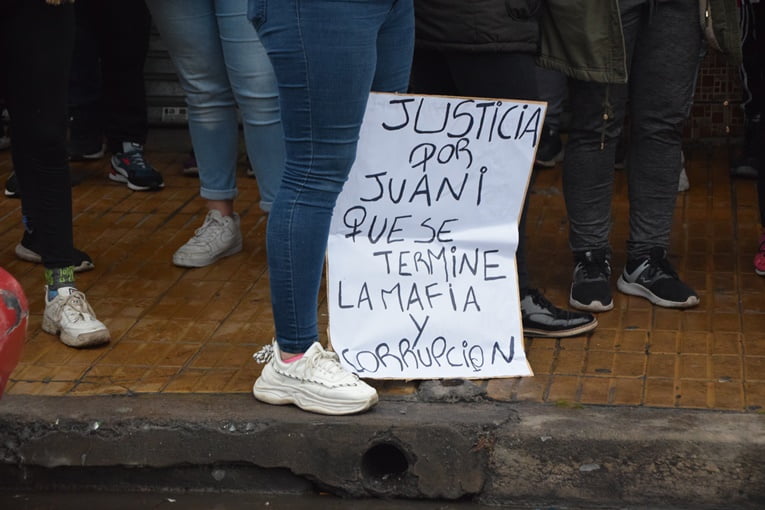 JUSTICIA
POR
JUANI
QUE SE
TERMINE
LA MAFIA
Y
CORRUPCION